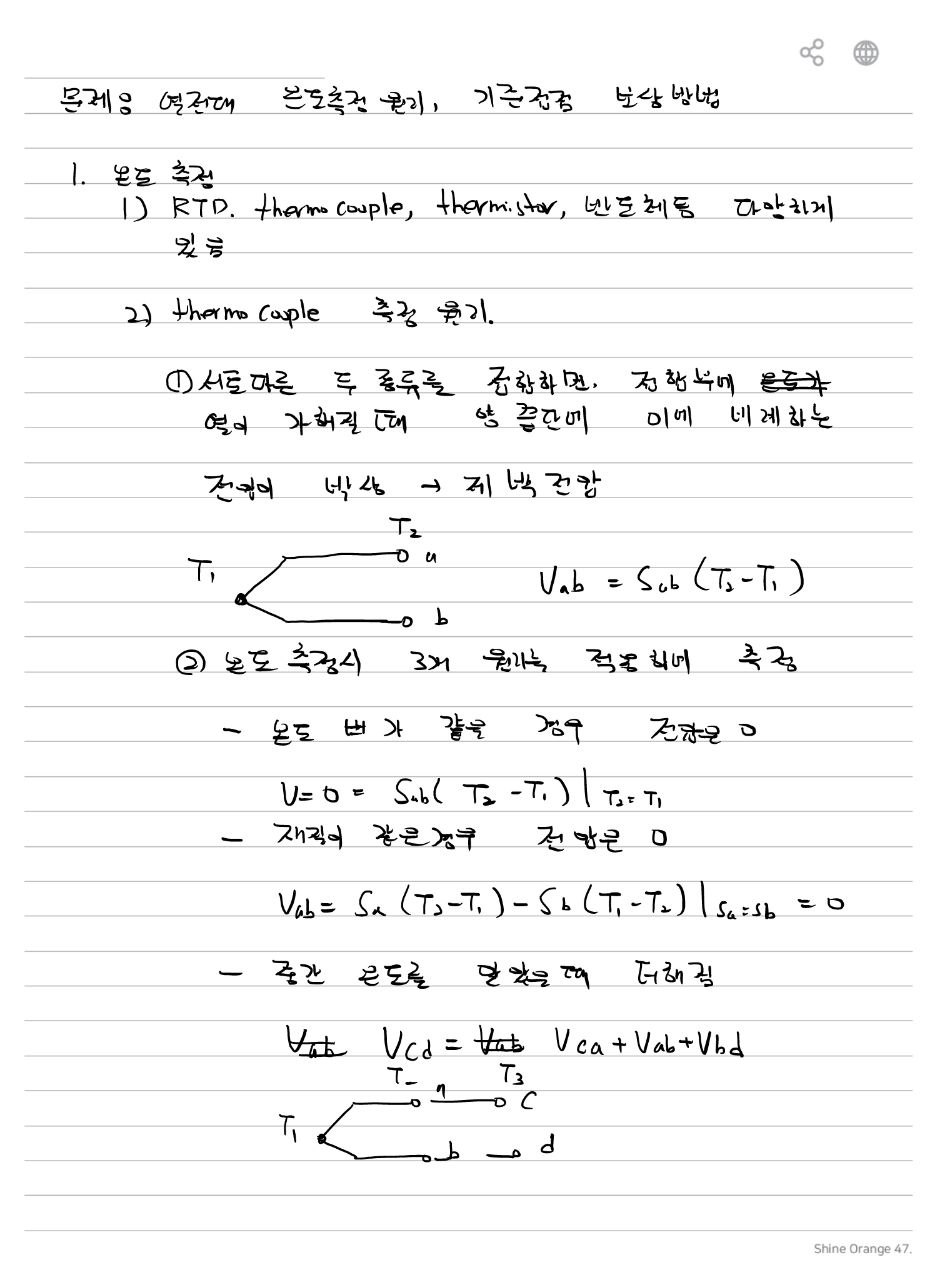 문제8 열전대 온도측정 원리, 기준접점 보상방법
1. 온도 측정
1) RTD. thermo couple, thermistor, 반도체등 다양하게
있음
2) thermo couple 측정 원리.
① 서로다른 두 종류를 접합하면. 접합부에
열이 가해질 때 양 끝단에 이에 비례하는
전위이 발생 → 제벡전압
T₂
T₁ a
Vab = Sab (T₂-T₁)
b
② 온도 측정시 3가 원리를 적용하여 측정
- 온도 가 같을 경우 전압은 0
V= 0 = Sab( T₂ -T₁) | T₂= T₁
- 재질이 같은경우 전압은 0
Vab= Sa (T₂-T₁) - Sb (T₁-T₂) | Sa=Sb = 0
- 중간 온도를 알았을때 더해짐
Vab Vcd = Vab Vca + Vab + Vbd
T₃
T₁ C
b d
Shine Orange 47.